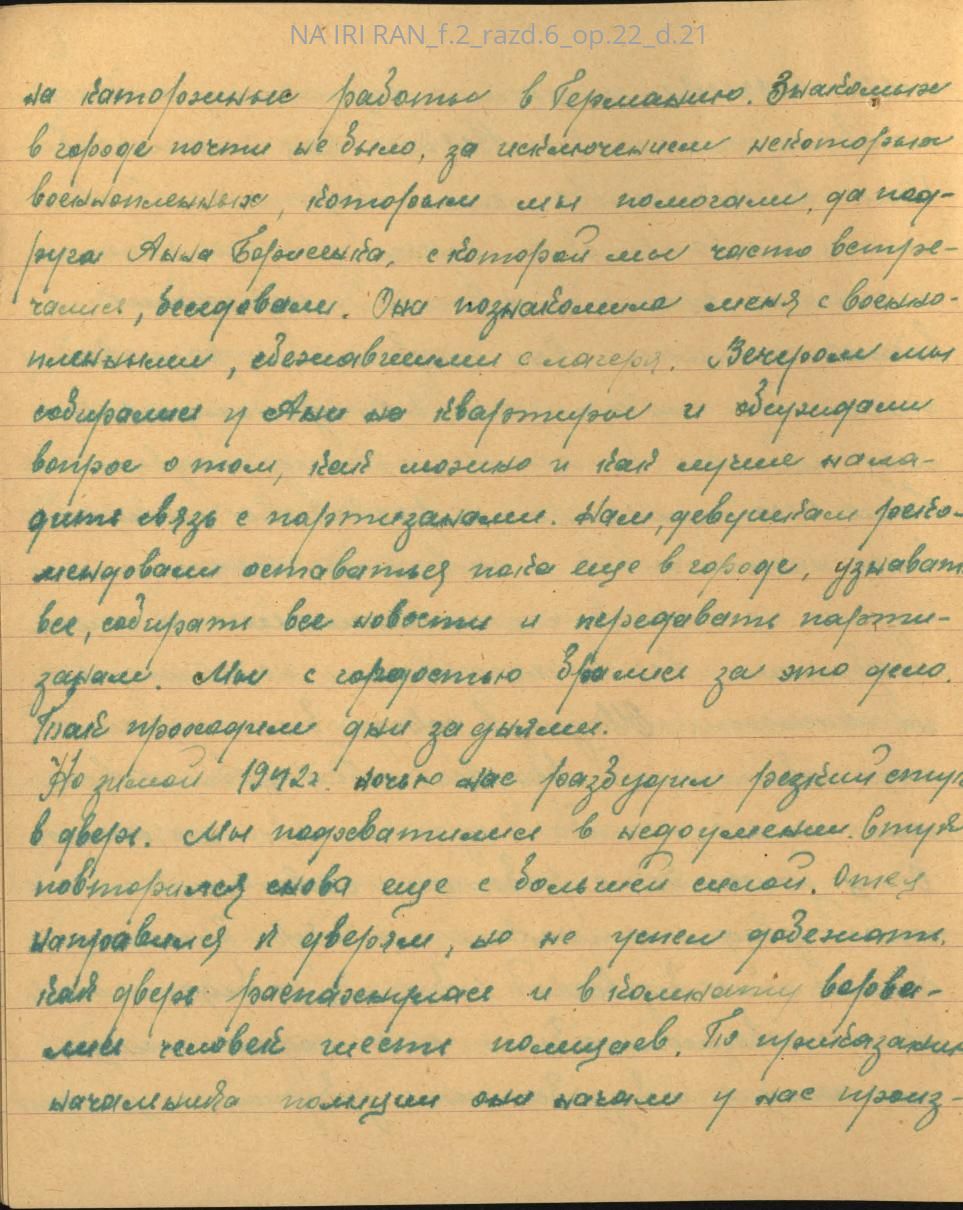 NA IRI RAN_f.2_razd.6_op.22_d.21
на каторжные работы в Германию. Знакомых
в городе почти не было, за исключением некоторых
военнопленных, которым мы помогали, да под-
руга Анна Борисенка, с которой мы часто встре-
чались, беседовали. Она познакомила меня с военно-
пленными, сбежавшими с лагеря. Вечером мы
собирались у Ани на квартире и обсуждали
вопрос о том, как можно и как лучше нала-
дить связь с партизанами. Нам, девушкам реко-
мендовали оставаться пока еще в городе, узнавать
все, собирать все новости и передавать парти-
занам. Мы с гордостью брались за это дело.
Так проходили дни за днями.
Но зимой 1942г. ночью нас разбудил резкий стук
в дверь. Мы подхватились в недоумении. Стук
повторился снова еще с большей силой. Отец
направился к дверям, но не успел добежать,
как дверь распахнулась и в комнату ворва-
лись человек шесть полицаев. По приказанию
начальника полиции они начали у нас произ-